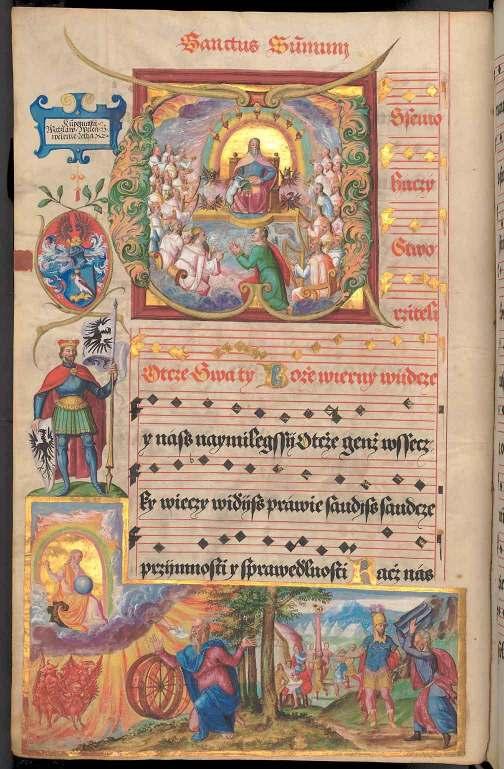 Sanctus Sūmum
Wssemo
huczy
Stwo
rziteli
Otcze Swaty Bože wierny wudcze
y náss naymilegssy Otcže genž wssecz
ky wieczy widyss prawie saudyss saudcze
przijmnosti y sprawedlnosti Racž nás